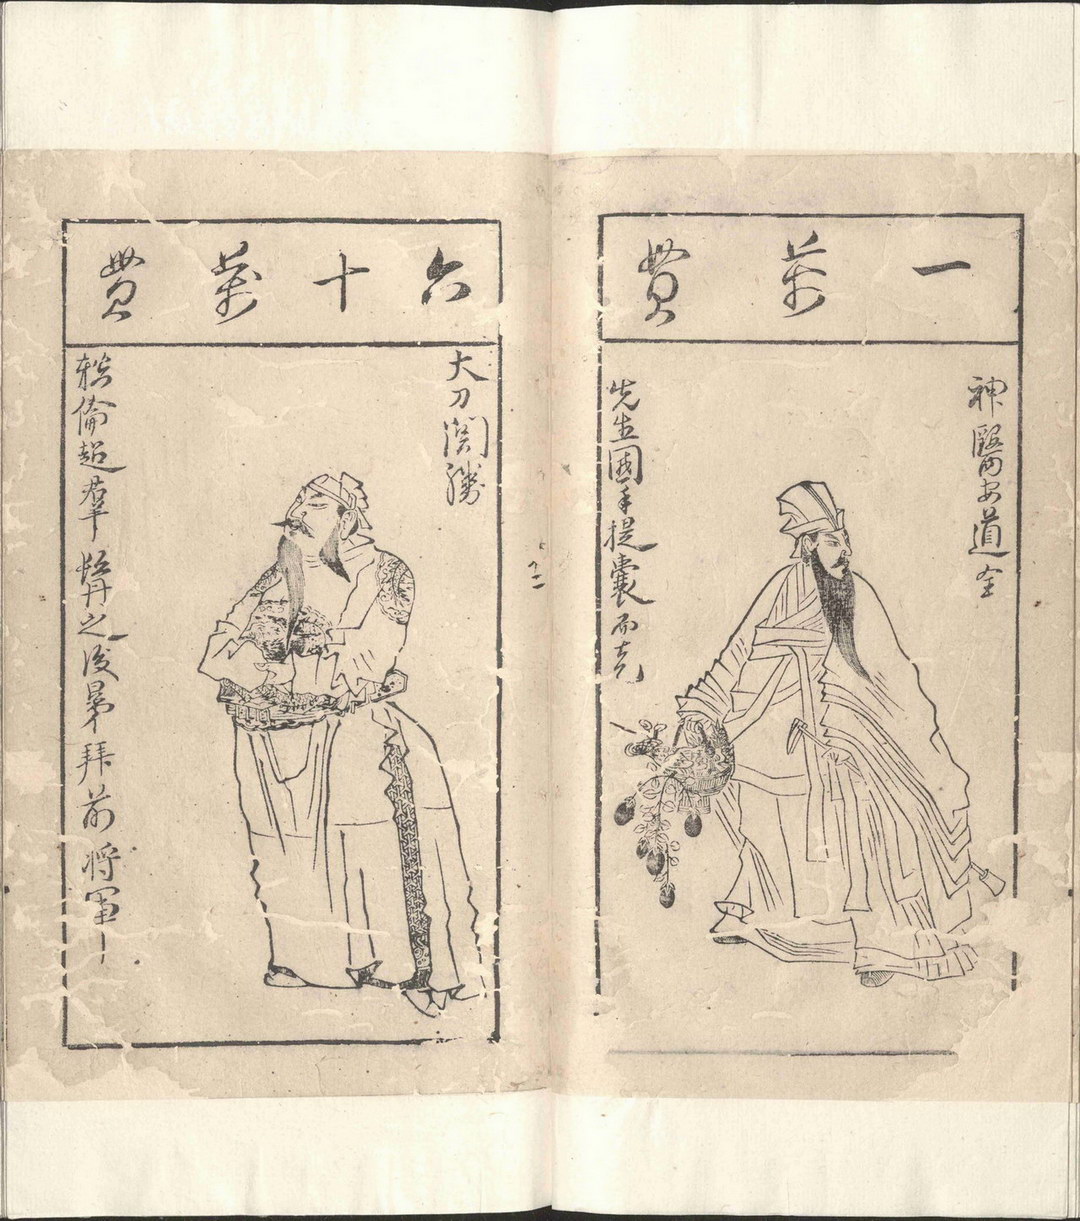 一萬貫
神醫安道全
先生國手提囊而走
六十萬貫
大刀關勝
軼倫超羣髯之後晜拜前將軍